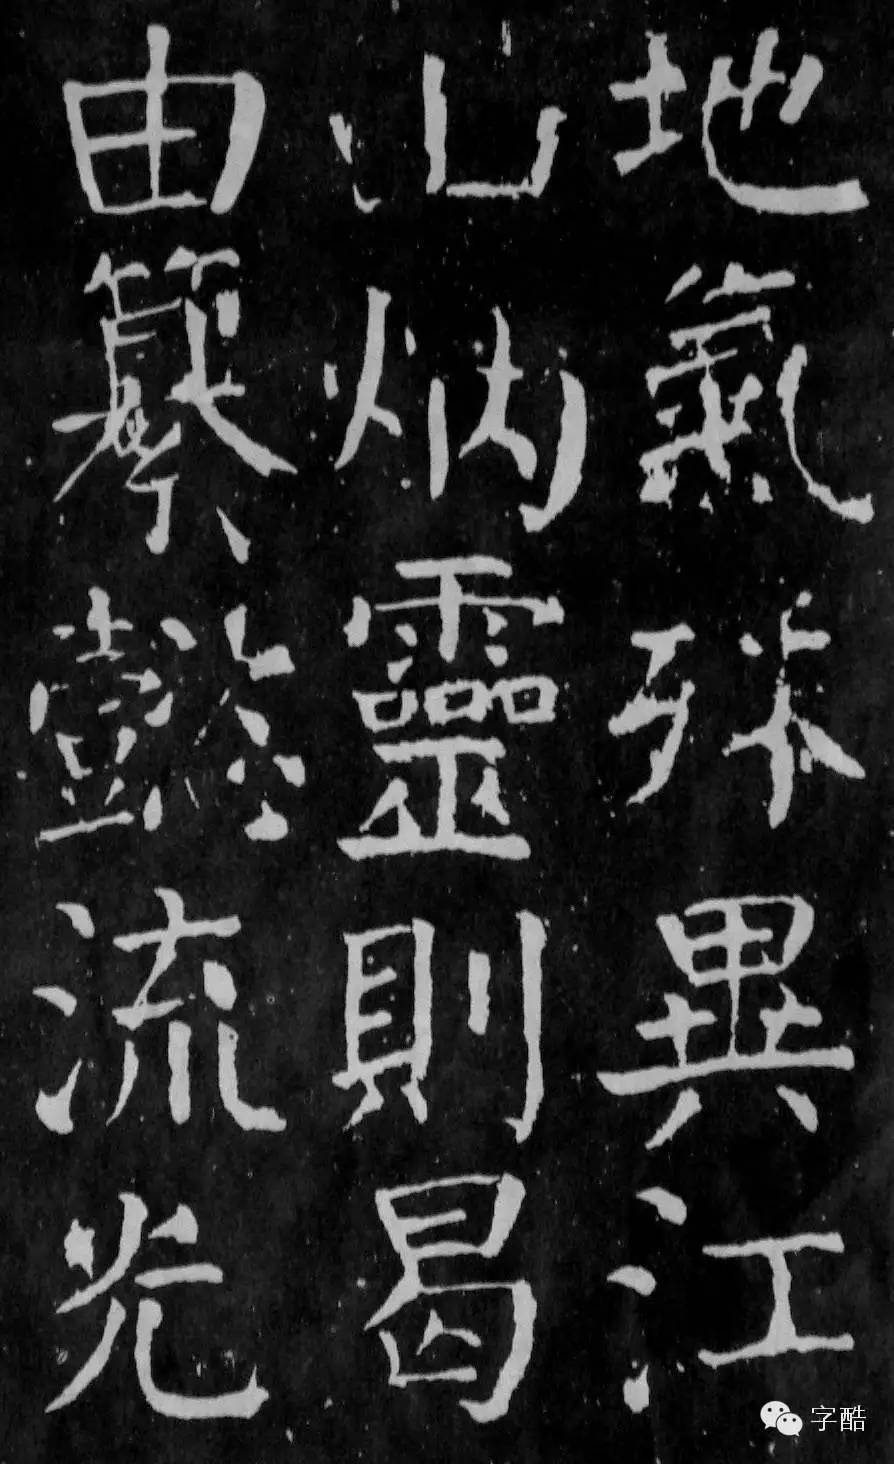 地氣殊異江
山炳靈則曷
由纂懿流光
字酷